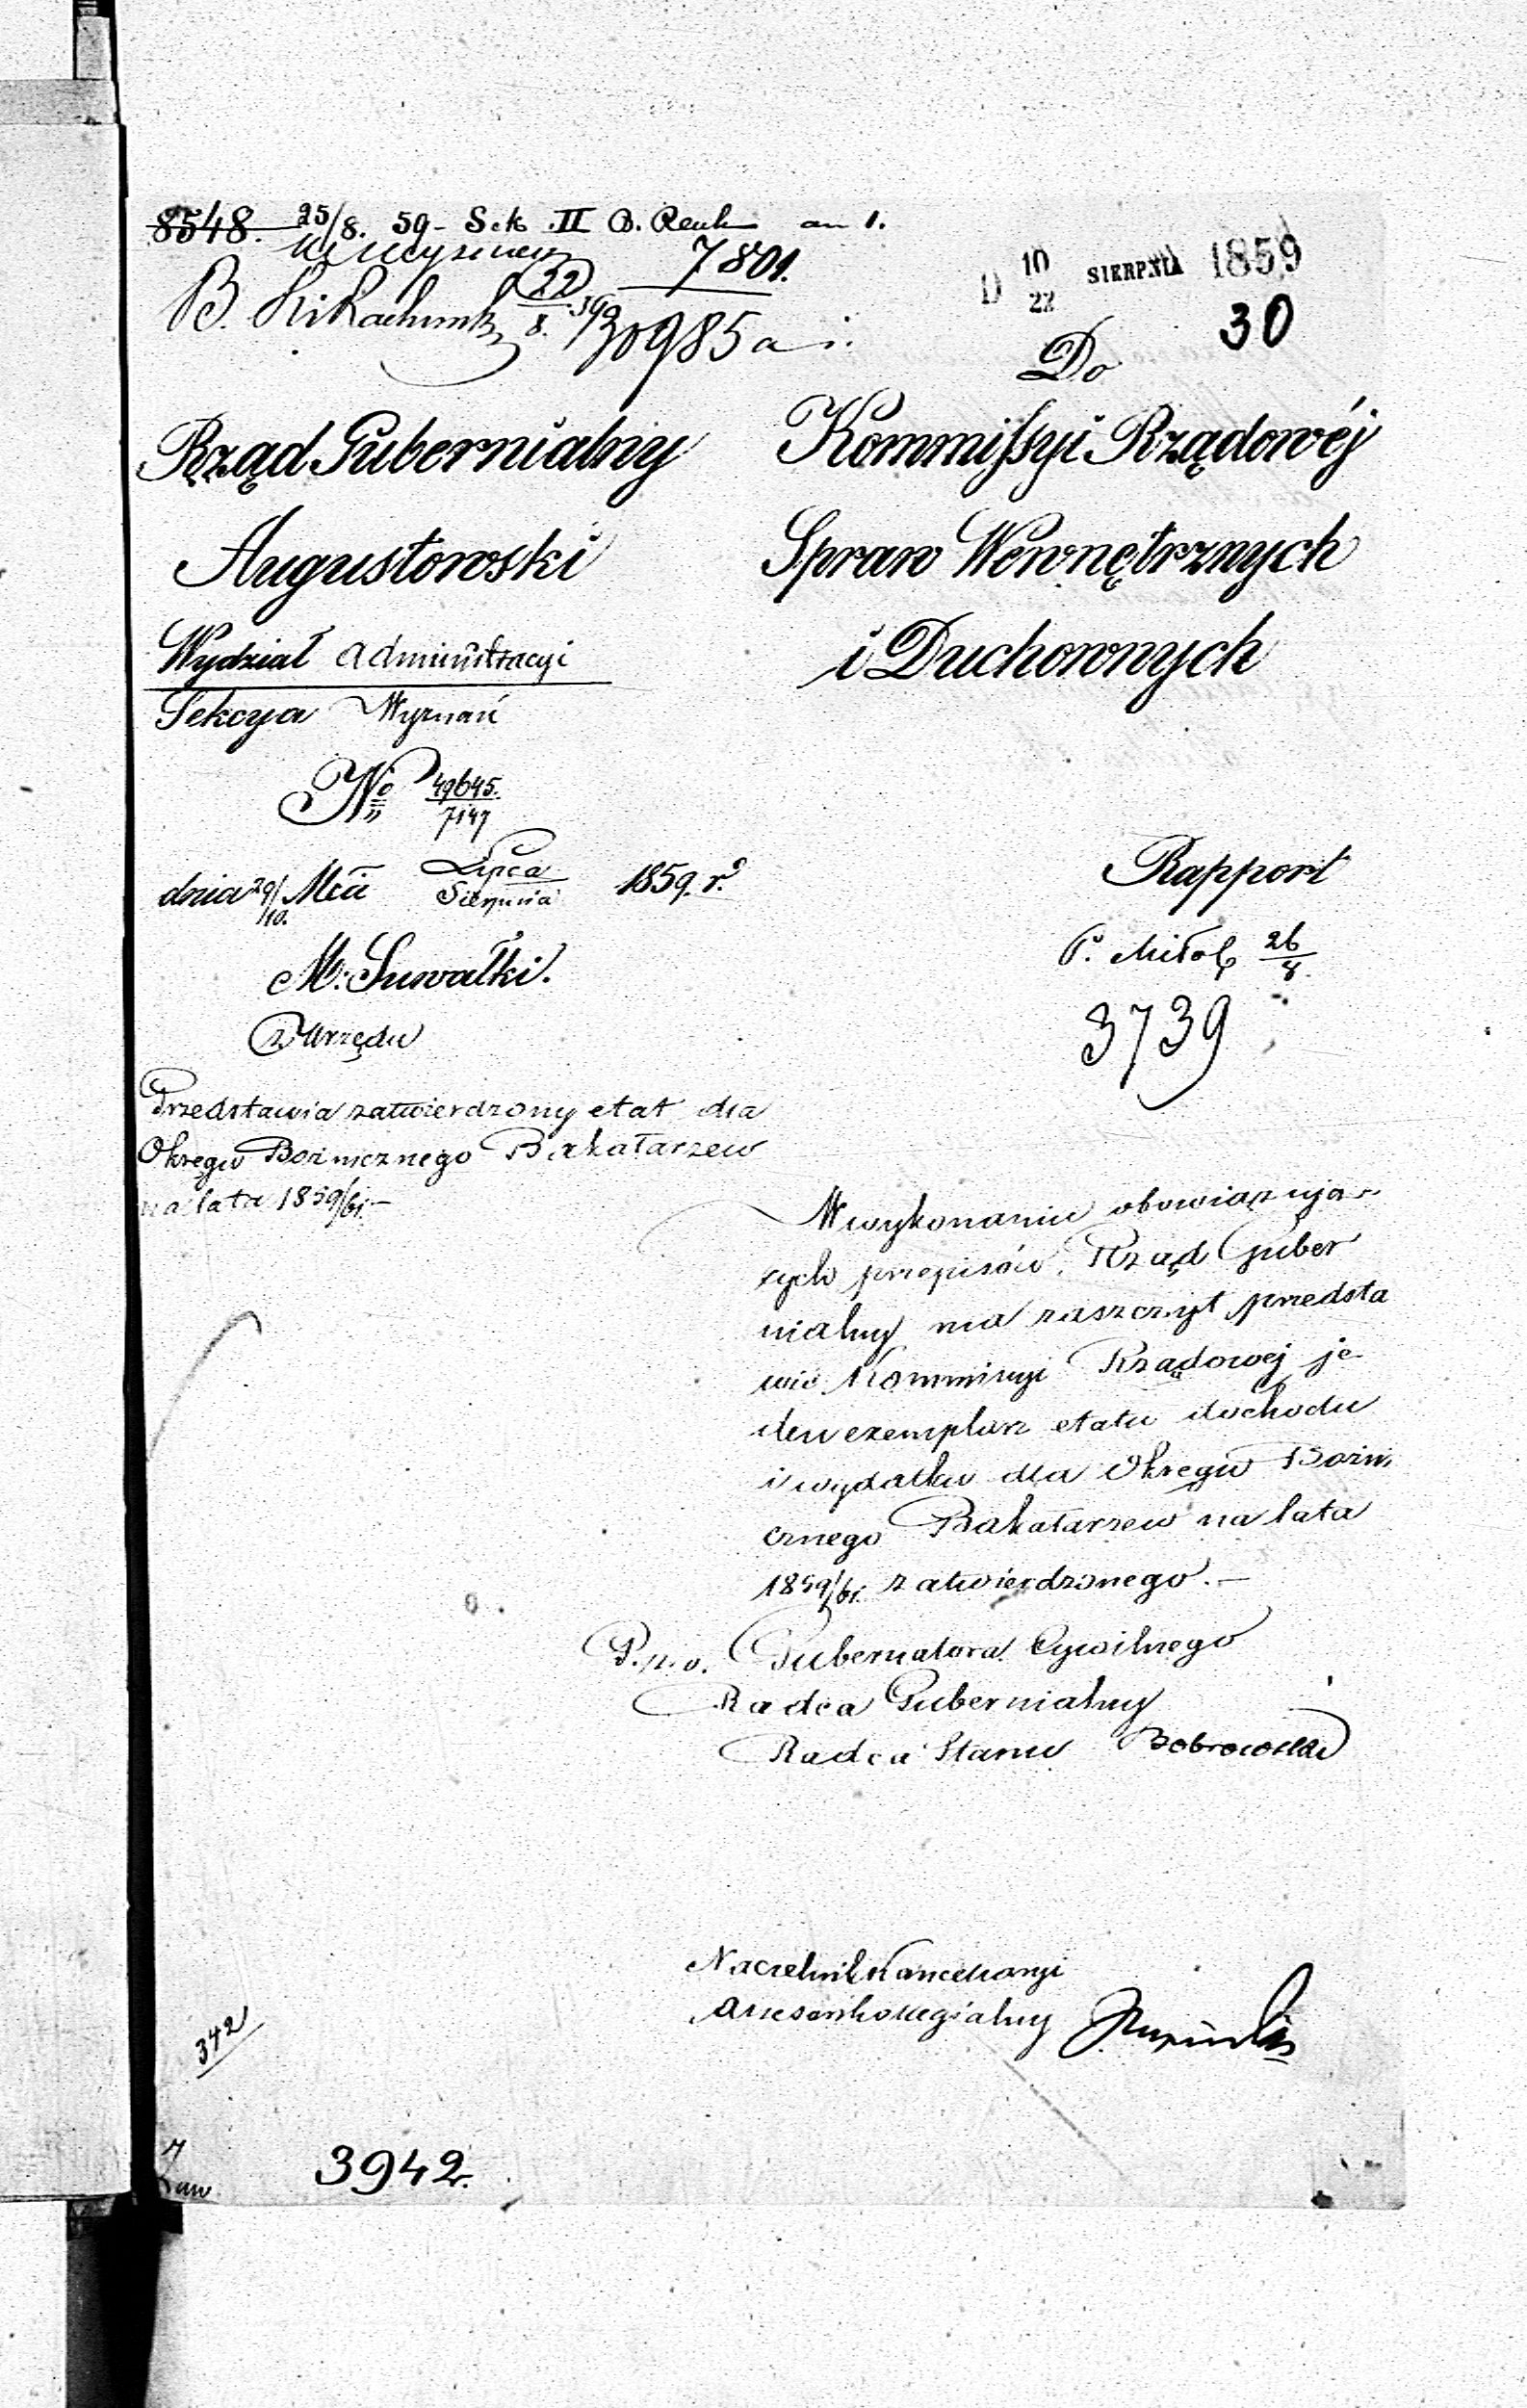 8548. 25/8. 59 - Sek. II B. Rach an 1.
7801.
D 10/22 SIERPNIA 1859
B. 22/8. 59
30985 a i.
30
Do
Rząd Gubernialny
Augustowski
Wydział Administracyi
Sekcya Wyznań
No 49645./7147
dnia 29/10. Mca Lipca/Sierpnia 1859. r.
M. Suwałki.
z Urzędu
Przedstawia zatwierdzony etat dla
Okręgu Bożnicznego Bakałarzew
na lata 1859/61.-
Kommissyi Rządowéj
Spraw Wewnętrznych
i Duchownych
Rapport
26/8.
3739
W wykonaniu obowiązują-
cych przepisów, Rząd Guber
nialny ma zaszczyt przedsta
wić Kommissyi Rządowej je
den exemplarz etatu dochodu
i wydatku dla Okręgu Bożni
cznego Bakałarzew na lata
1859/61. zatwierdzonego.-
P. n. o. Gubernatora Cywilnego
Radca Gubernialny
Radca Stanu Bobrowski
Naczelnik Kancellaryi
Assesor Kollegialny
342
3942.